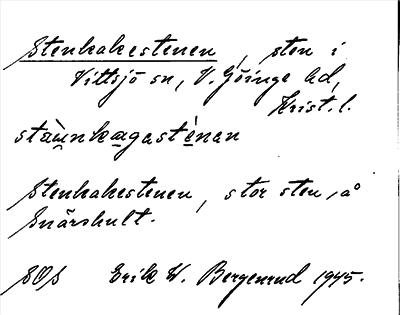 Stenkakestenen, sten i
Vittsjö sn, V. Göinge hd,
Krist. l.
stàu̯nkagasténan
Stenkakestenen, stor sten, å
Snärshult.
SOS Erik W. Bergenrud 1945.